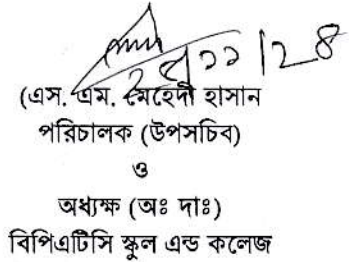 (এস. এম. মেহেদী হাসান
পরিচালক (উপসচিব)
ও
অধ্যক্ষ (অঃ দাঃ)
বিপিএটিসি স্কুল এন্ড কলেজ